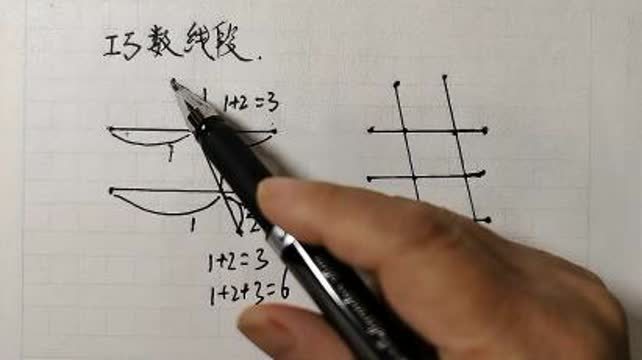 巧数线段.
1+2=3
1
1 2
1+2=3
1+2+3=6